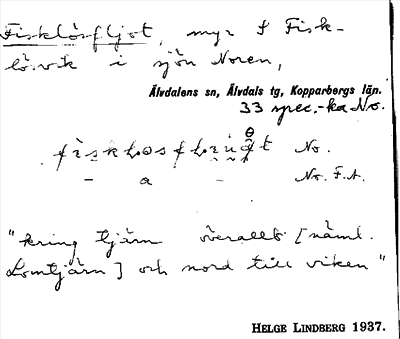 Fisklösfljot, myr S Fisk-
lö.vik i sjön Noren,
Älvdalens sn, Älvdals tg, Kopparbergs län.
33 spec.-ka No.
No.
– a – No. F.A.
"kring tjärn överallt [näml.
Lomtjärn] och nord till viken"
HELGE LINDBERG 1937.